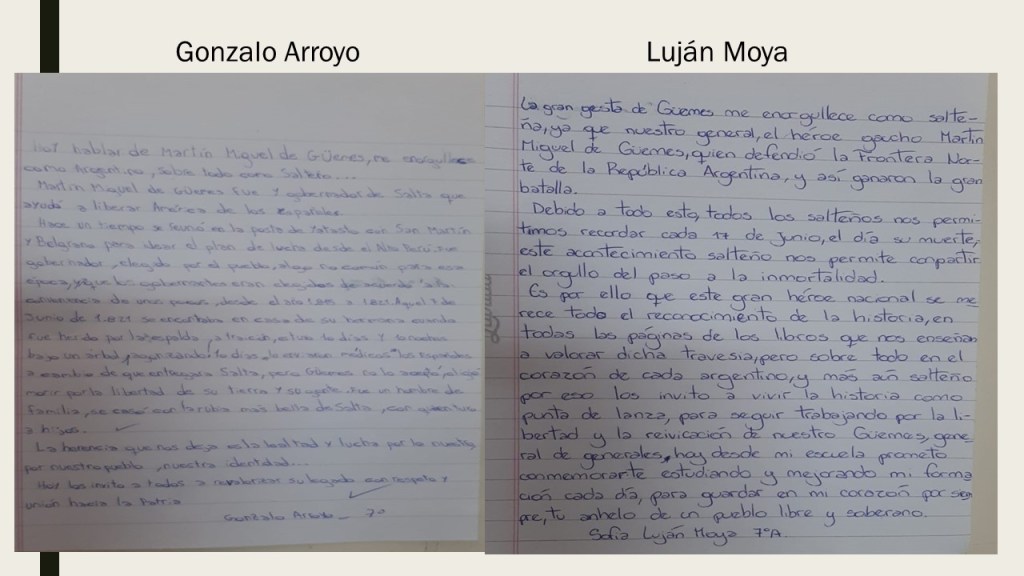 Gonzalo Arroyo
hablar de Martín Miguel de Güemes, me enorgullece
como Argentino, sobre todo como Salteño...
Martín Miguel de Güemes fue gobernador de Salta que
ayudó a liberar América de los Españoles
Hace un tiempo se reunió en la posta de Yatasto con San Martín
y Belgrano para idear el plan de lucha desde el Alto Perú, fue
gobernador, elegido por el pueblo, algo no común para esa
época,
desde el
Junio de 1.821 se encontraba en casa de su hermana cuando
fue herido por la espalda, a traición, estuvo 10 días
bajo un
a cambio de que entregara Salta, pero Güemes no lo aceptó, eligió
morir por la libertad de su tierra y su gente. Fue un hombre de
Familia, se casó con la rubia más bella de Salta, con quien tuvo
3 hijos.
La herencia que nos deja es la lealtad y lucha por lo nuestro,
por nuestro pueblo, nuestra identidad...
Hoy los invito a todos a su legado con respeto y
unión hacia la Patria
Gonzalo Arroyo _ 7°
Luján Moya
La gran gesta de Güemes me enorgullece como salte-
ña, ya que nuestro general, el héroe gaucho Martín
Miguel de Güemes, quien defendió la Frontera Nor-
te de la República Argentina, y así ganaron la gran
batalla.
Debido a todo esto, todos los salteños nos permi-
timos recordar cada 17 de Junio, el día su muerte,
este acontecimiento salteño nos permite conpartir
el orgullo del paso a la inmortalidad.
Es por ello que este gran héroe nacional se me
rece todo el reconocimiento de la historia, en
todas las páginas de los libros que nos enseñan
a valorar dicha travesia, pero sobre todo en el
corazón de cada argentino, y más aún salteño
por eso los invito a vivir la historia como
punta de lanza, para seguir trabajando por la li-
bertad y la reivicación de nuestro Güemes, gene
ral de generales, hoy desde mi escuela prometo
conmemorarte estudiando y mejorando mi forma
ción cada día, para guardar en mi corazón por siem
pre, tu anhelo de un pueblo libre y soberano.
Sofía Luján Moya 7°A.